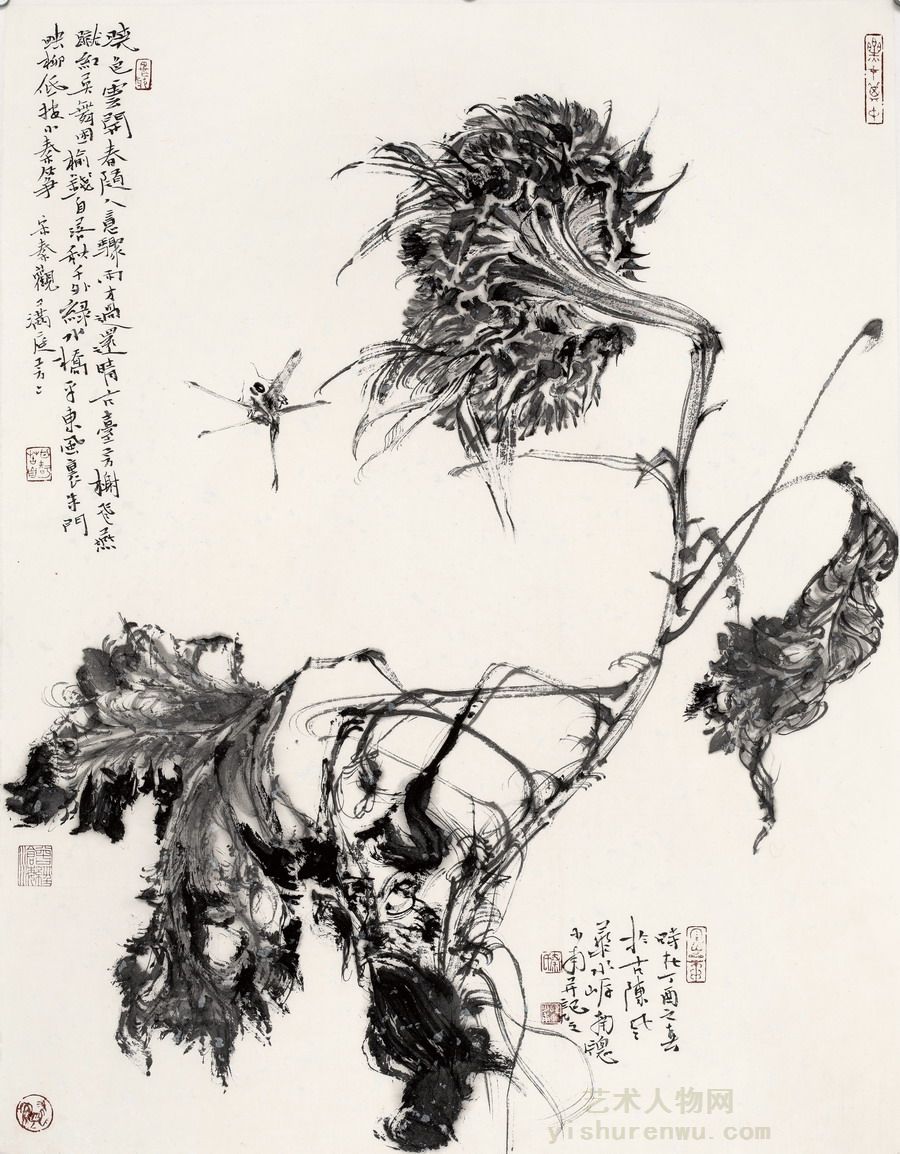 曉色雲開春隨人意驟雨才過還晴古臺芳榭飛燕
蹴紅英舞困榆錢自落秋千外綠水橋平東風裏朱門
映柳低按小秦箏 宋秦觀之滿庭芳
時在丁酉之
於古陳
水岸南窗
并記之
艺术人物网
yishurenwu.com